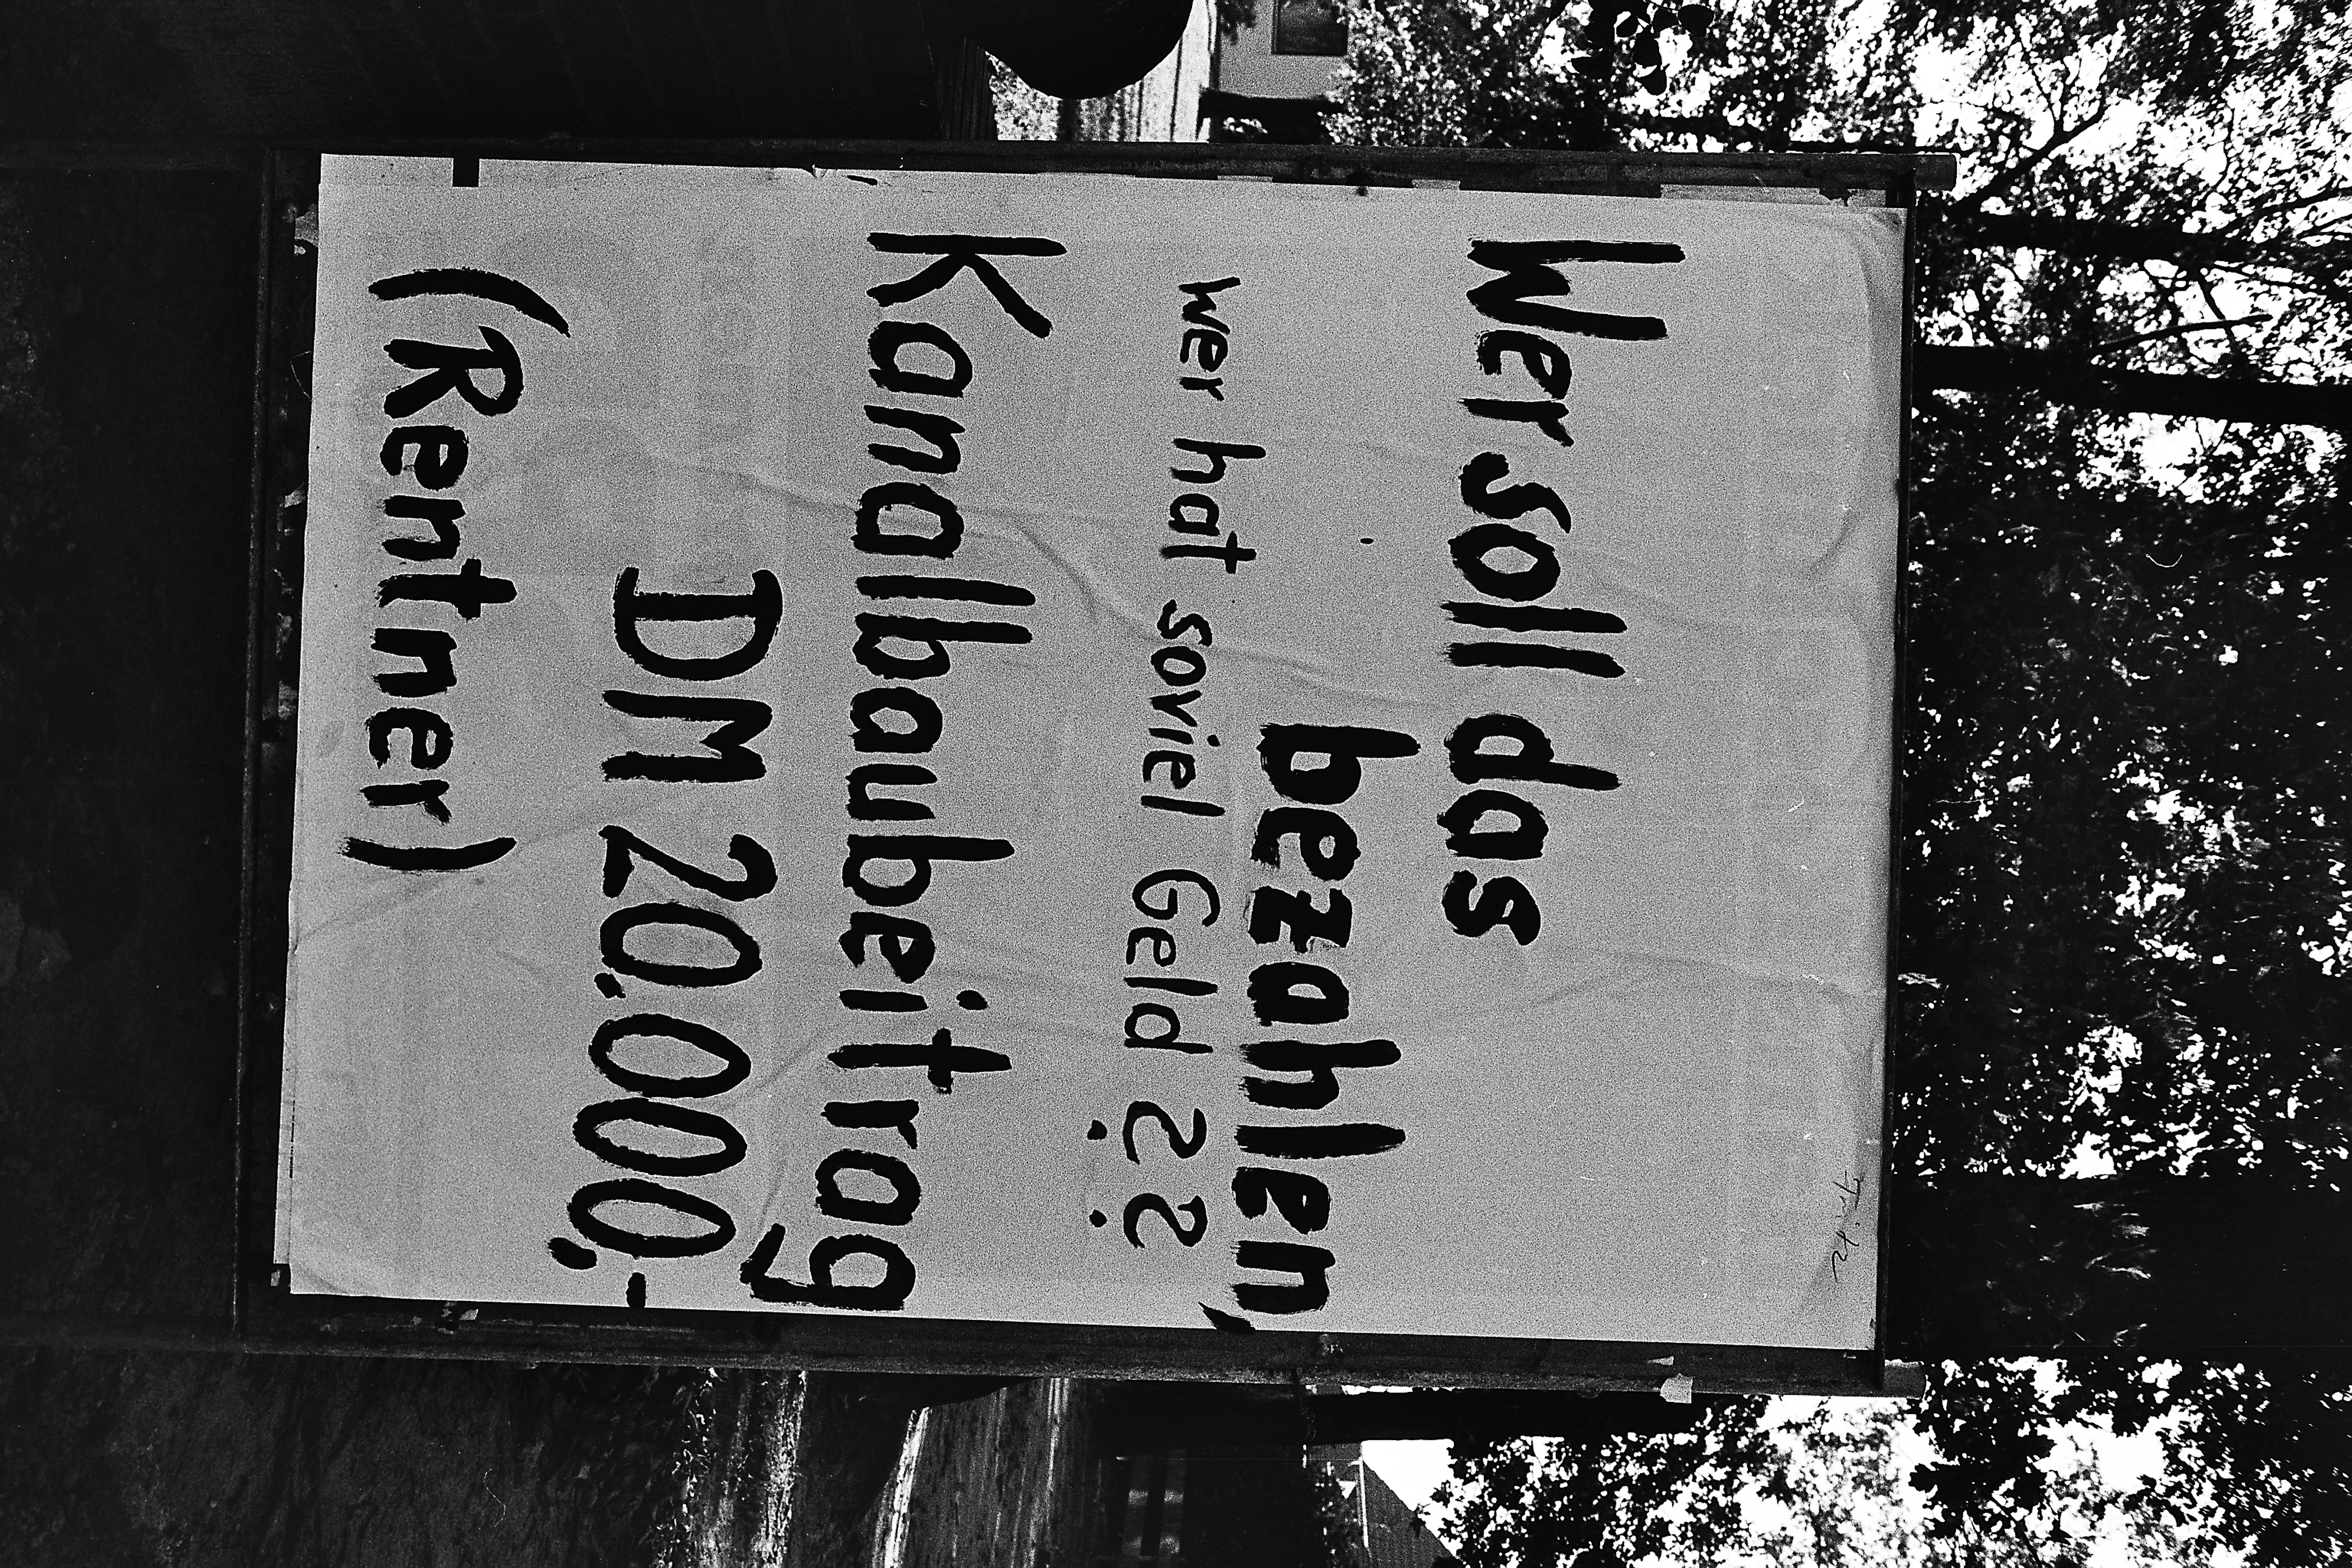 Wer soll das
bezahlen,
wer hat soviel Geld ??
Kanalbaubeitrag
DM 20.000,-
(Rentner)